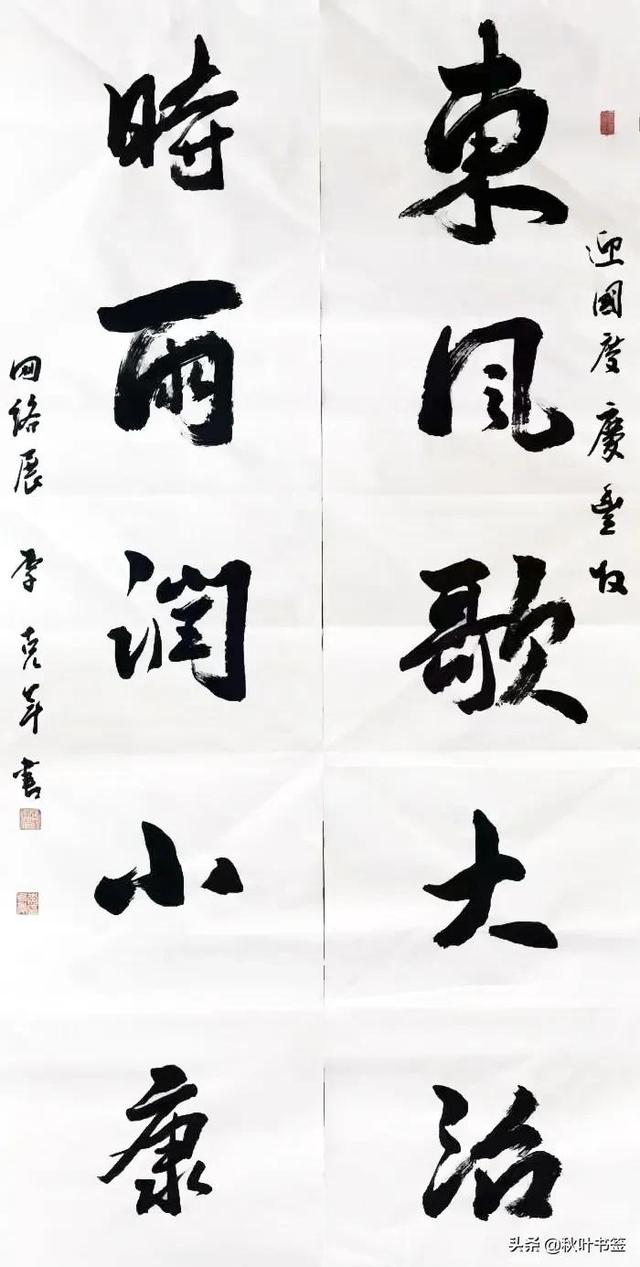 迎國度慶豐收
東風歌大治
時雨潤小康
网絡展 李克年書
头条 @秋叶书签